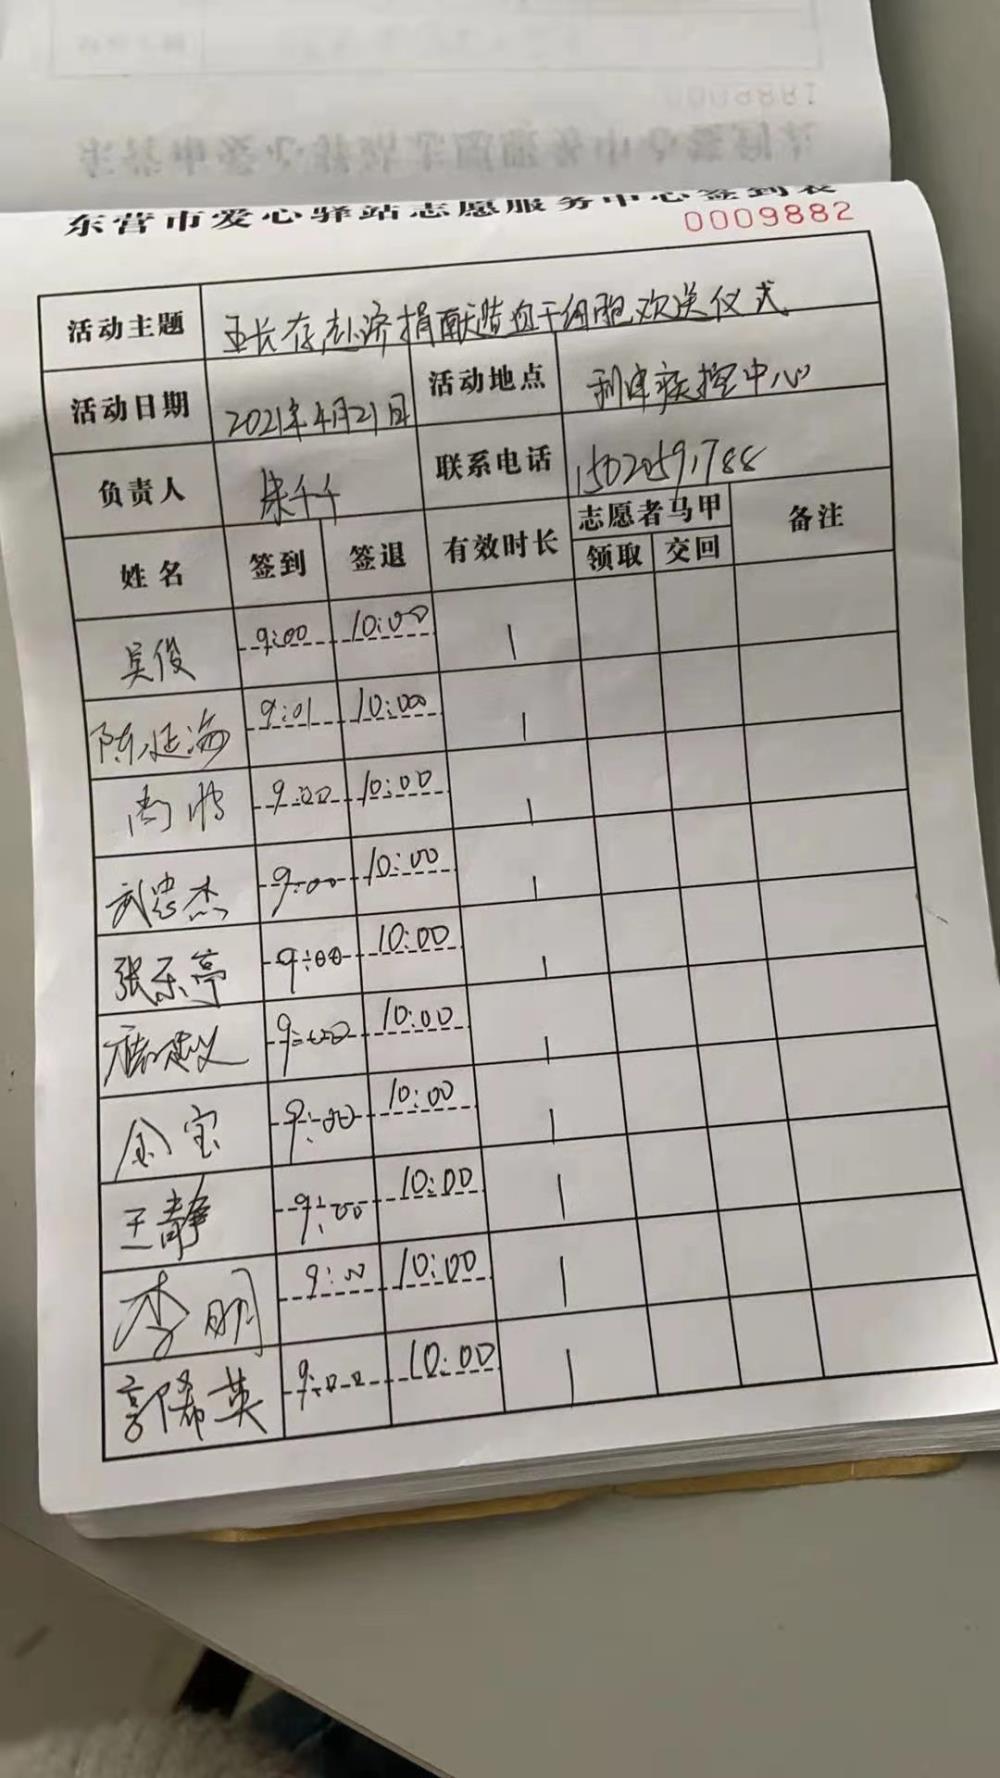 东营市爱心驿站志愿服务中心签到表
0009882
活动主题 王长存赴济捐献造血干细胞欢送仪式
活动日期 2021年4月21日 活动地点 利津疾控中心
负责人 朱千千 联系电话 15020591788
姓名 签到 签退 有效时长 志愿者马甲 备注
领取 交回
吴俊 9:00 10:00 1
陈延海 9:01 10:00 1
9:00 10:00 1
武忠杰 9:00 10:00 1
张乐亭 9:00 10:00 1
9:00 10:00 1
金宝 9:00 10:00 1
王静 9:00 10:00 1
李明 9:00 10:00 1
郭俙英 9:00 10:00 1